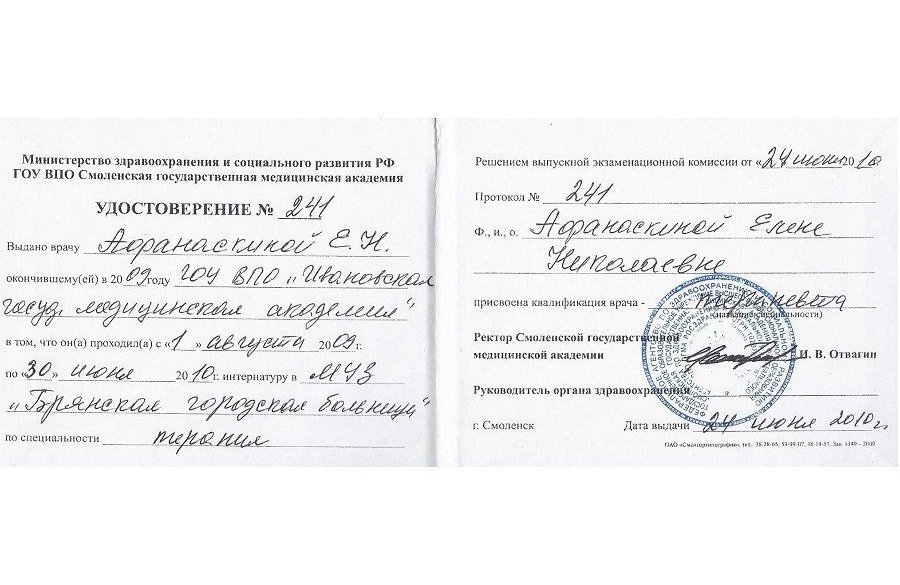 Министерство здравоохранения и социального развития РФ
ГОУ ВПО Смоленская государственная медицинская академия
УДОСТОВЕРЕНИЕ № 241
Выдано врачу Афанаскиной Е. Н.
окончившему(ей) в 2009 году ГОУ ВПО „Ивановская
госуд. медицинская академия"
в том, что он(а) проходил(а) с «1» августа 2009 г.
по «30» июня 2010 г. интернатуру в МУЗ
„Брянская городская больница"
по специальности терапия
Решением выпускной экзаменационной комиссии от «24 июня 2010
Протокол № 241
Ф., и., о. Афанаскиной Елене
Николаевне
присвоена квалификация врача - терапевта
(название специальности)
Ректор Смоленской государственной
медицинской академии И. В. Отвагин
Руководитель органа здравоохранения
г. Смоленск Дата выдачи 24 июня 2010 г.
ОАО «Смолгортипография», тел.: 38-28-65, 59-99-07, 38-14-53. Зак. 5149 – 2009